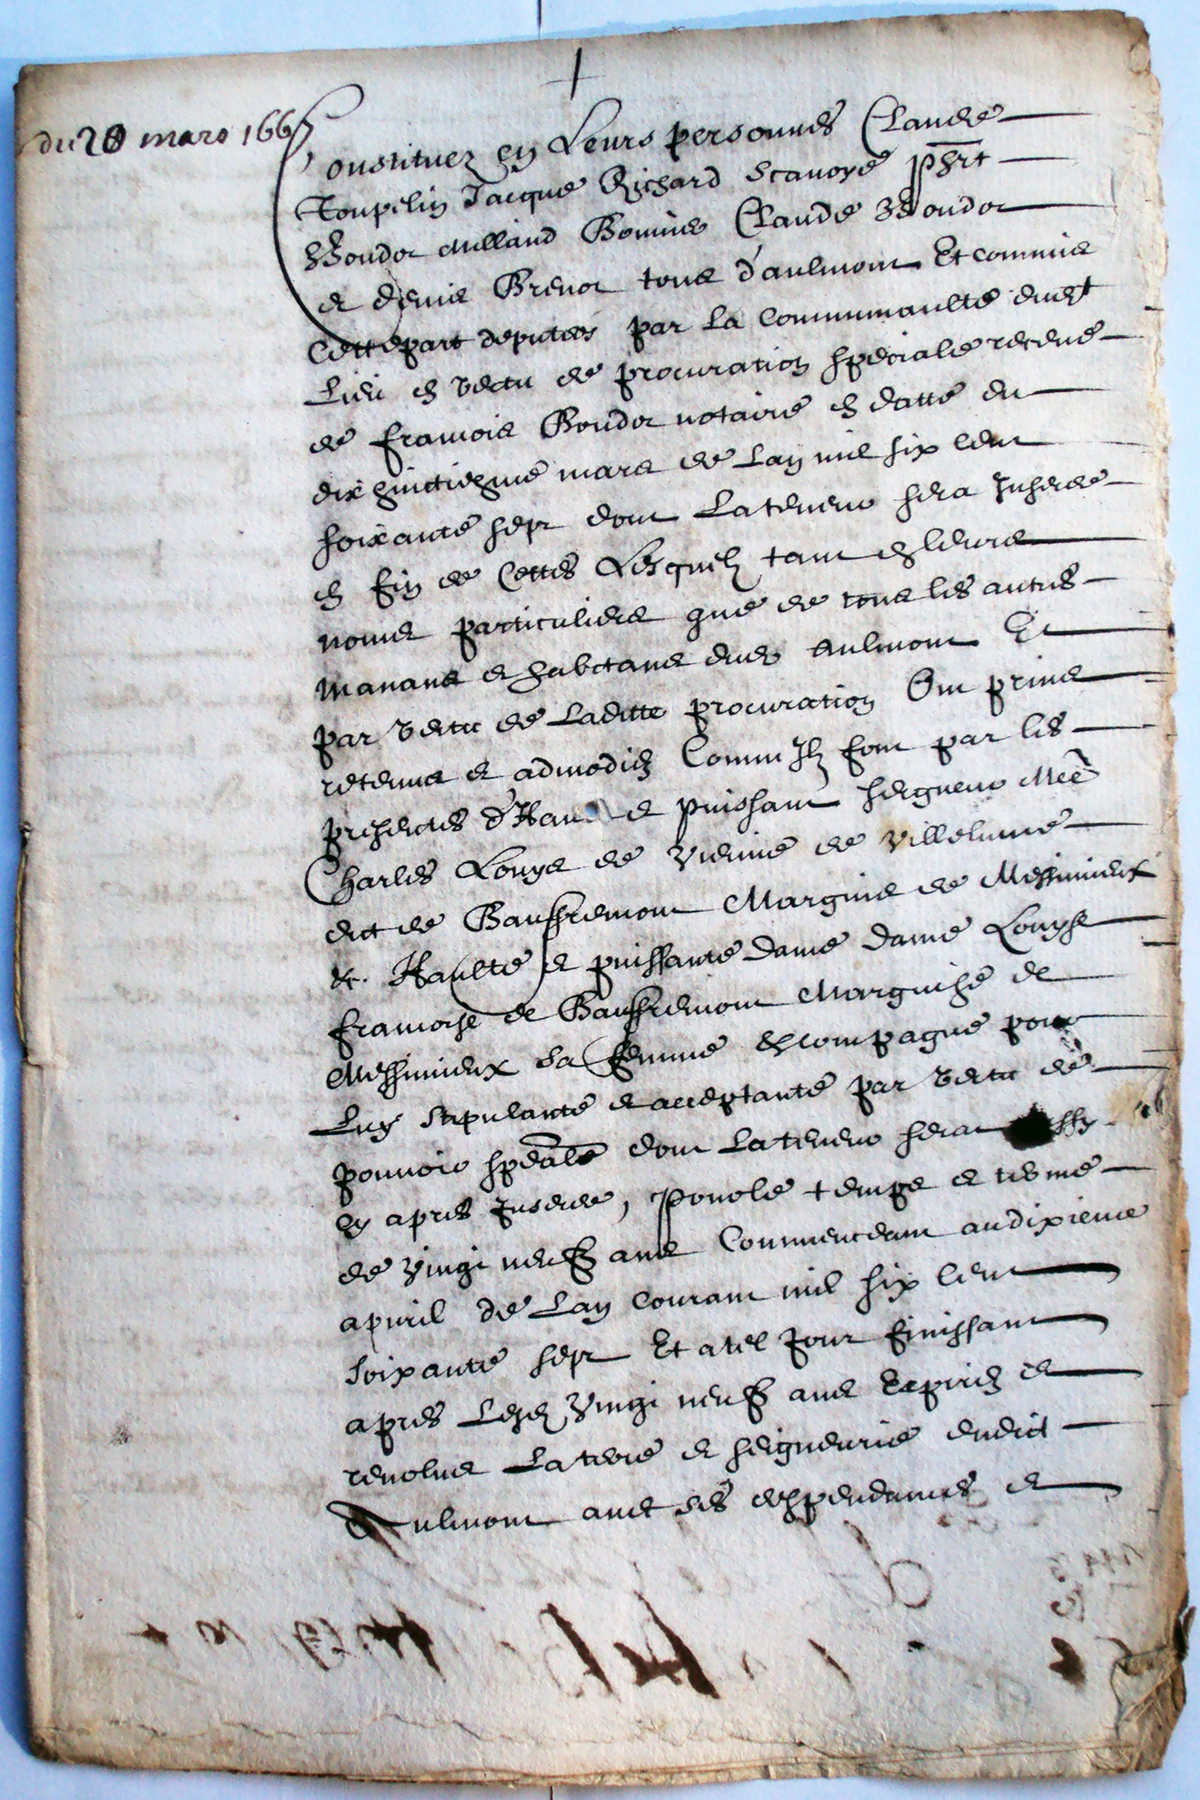 du 28 mars 1667
Constituez en Leurs personnes Claude
Toupelin Jacque Richard Scavoye phrt
Boudot Milland Bonnins Claude Boudot
et denis Brenot tous d'aulmont Et commis
Cettepart deputees par La Communaulté dudt
Lieu en vertu de procuration speciale receue
de francois Boudot notaire en datte du
dix huictiesme mars de Lan mil six cent
soixante sept dont La teneur sera Inseree
en fin de Cettes Lesquelz tant en leurs
noms particuliers que de tous les autres
manans et habitans dudt aulmont Et
par vertu de Laditte procuration Ont prins
retenus et admodiez Comm Ilz font par les
presentes d'Hau et puissant seigneur Mre
Charles Louys de Vienne de Villelume
dict de Bauffremont Marquis de Messimieux
et. Haulte et puissante dame dame Louyse
francoise de Bauffremont Marquise de
Messimieux sa femme et compagne pour
Luy stipulante et acceptante par vertu de
pouvoir speâle dont La teneur sera
cy apres Inseree, Pour le temps et terme
de vingt neufz ans Commenceant au dixieme
apvril de Lan courant mil six cent
soixante sept Et a tel Jour finissant
apres Lesdz vingt neufz ans Expirez et
revolus La terre et seigneurie dudict
Aulmont avec ses deppendances et